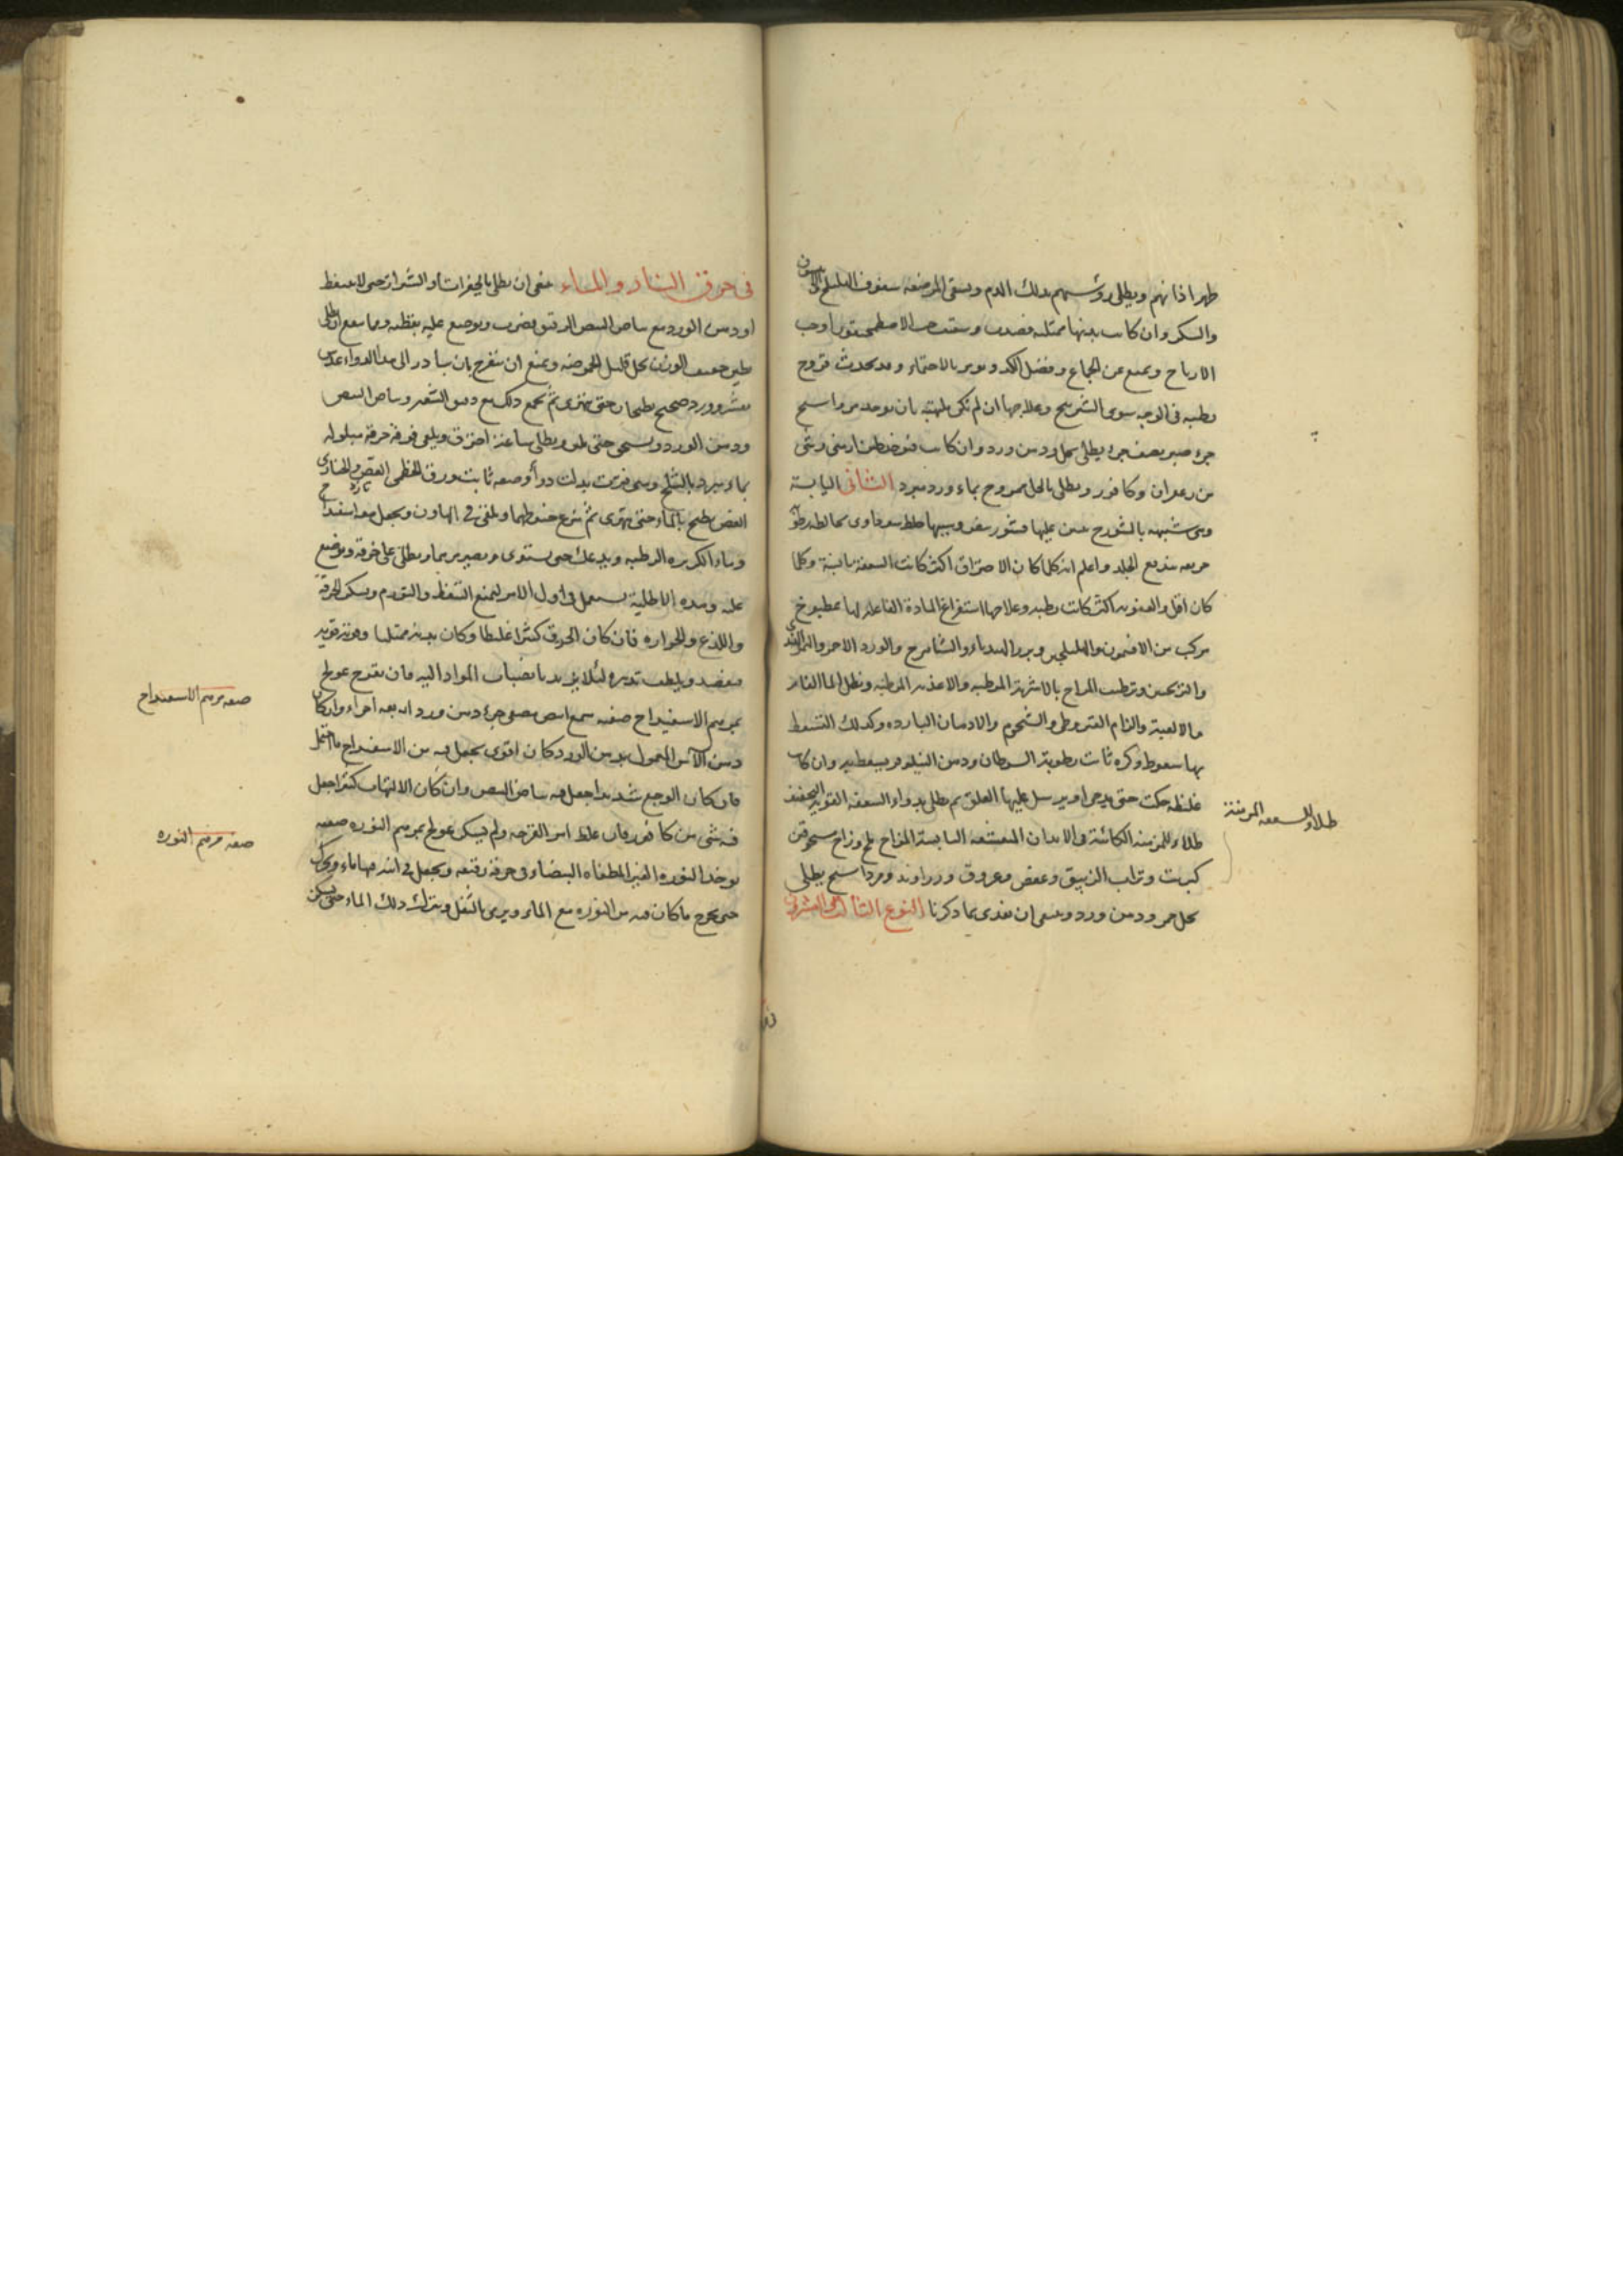 ظهر اذانهم ويطلى رؤسهم بذلك الدم ويسقى المرضعه سفوف الهليلج
والسكر وان كانت بدنها ممتلئه فصدت
الارياح ويمنع من الجماع وفضل الكد ويومر بالاحتماء وقد يحدث قروح
رطبه فى الوجه سوى الشيرينج وعلاجها ان لم تكن ملهبة بان يوخذ مرداسنج
جزء صبر نصف جزء يطلى بخل ودهن ورد وان كانت طين ارمنى وشى
من زعفران وكافور ويطلى بالخل ممزوج بماء ورد مبرد الثانى اليابسة
وهى شبيهه بالشورج عليها قشور بيض وسببها خلط سوداوى يخالطه رطوبة
حريفه يندفع الجلد واعلم انه كلما كان الاحتراق اكثر كانت السعفة يابسة وكلما
كان اقل والعفونه اكثر كانت رطبه وعلاجها استفراغ المادة الفاعله لها بمطبوخ
مركب من الافتيمون والهليلجين وبزر الهندباء والشاهترج والورد الاحمر والتمر الهندى
والترنجبين وترطيب المزاج بالاشربة المرطبه والاغذيه المرطبه ونطل الماء الفاتر
بالالعبة والزام القيروطى والشحوم والادهان البارده وكذلك التسعط
بها سعوط ذكره ثابت رطوبة السرطان ودهن النيلوفر يسعط به وان كانت
غليظه حكت حتى يدمى او يرسل عليها العلق ثم يطلى بدواء السعفه القويه التجفيف
طلاء للمزمنه الكائنة فى الابدان القشفه اليابسة المزاج ملح وزاج محرق
كبريت وتراب الزيبق وعفص وعروق وزراوند ومرداسنج يطلى
بخل خمر ودهن ورد وينبغى ان يغذى بما ذكرنا النوع الثالث والعشرون
طلاء للسعفه المزمنة
فى حرق النار والماء ينبغى ان يطلى بالمبردات او الشراب حتى لا يتنفط
او دهن الورد مع بياض البيض الرقيق يضرب ويوضع عليه بقطنه ومما ينفع ان يطلى
طين خفيف الوزن بخل قليل الحموضه ويمنع ان يتقرح بان يبادر الى هذا الدواء عدس
مقشر وورد صحيح يطبخان حتى يتهرى ثم يجمع ذلك مع دقيق الشعير وبياض البيض
ودهن الورد ويسحق حتى ويطلى ساعة احترق ويلقى فوقه خرقه مبلوله
بماء مبرد بالثلج ومتى فترت بدلت دواء وصفه ثابت ورق الخطمى الغض والخبازى
الغض يطبخ بالماء حتى يتهرى ثم ينزع خيوطهما ويلقى فى الهاون ويجعل معه اسفيداج
وماء الكزبره الرطبه ويدعك حتى يستوى ويصير مرهما ويطلى على خرقة ويوضع
عليه وهذه الاطلية يستعمل فى اول الامر ليمنع التنفط والتورم ويسكن الحرقة
واللذع والحراره فان كان الحرق كثيرا غليظا وكان بدنه ممتليا وقوته قويه
فيفصد ويلطف تدبيره لئلا يزيد بانصباب المواد اليه فان تقرح عولج
بمرهم الاسفيداج صفته شمع ابيض مصفى جزء دهن ورد اربعه اجزاء وان كان
دهن الآس المعمول بدهن الورد كان اقوى يجعل فيه من الاسفيداج ما احتمل
فان كان الوجع شديدا جعل فيه بياض البيض وان كان الالتهاب كثيرا جعل
فيه شى من كافور فان غلظ امر القرحه ولم يسكن عولج بمرهم النوره صفته
يوخذ النوره الغير المطفاه البيضاء فى خرقة رقيقه ويجعل فى اناء فيها ماء ويحرك
حتى يخرج ما كان فيه من النوره مع الماء ويرمى بالثفل ويترك ذلك الماء حتى يسكن
صفه مرهم الاسفيداج
صفه مرهم النوره